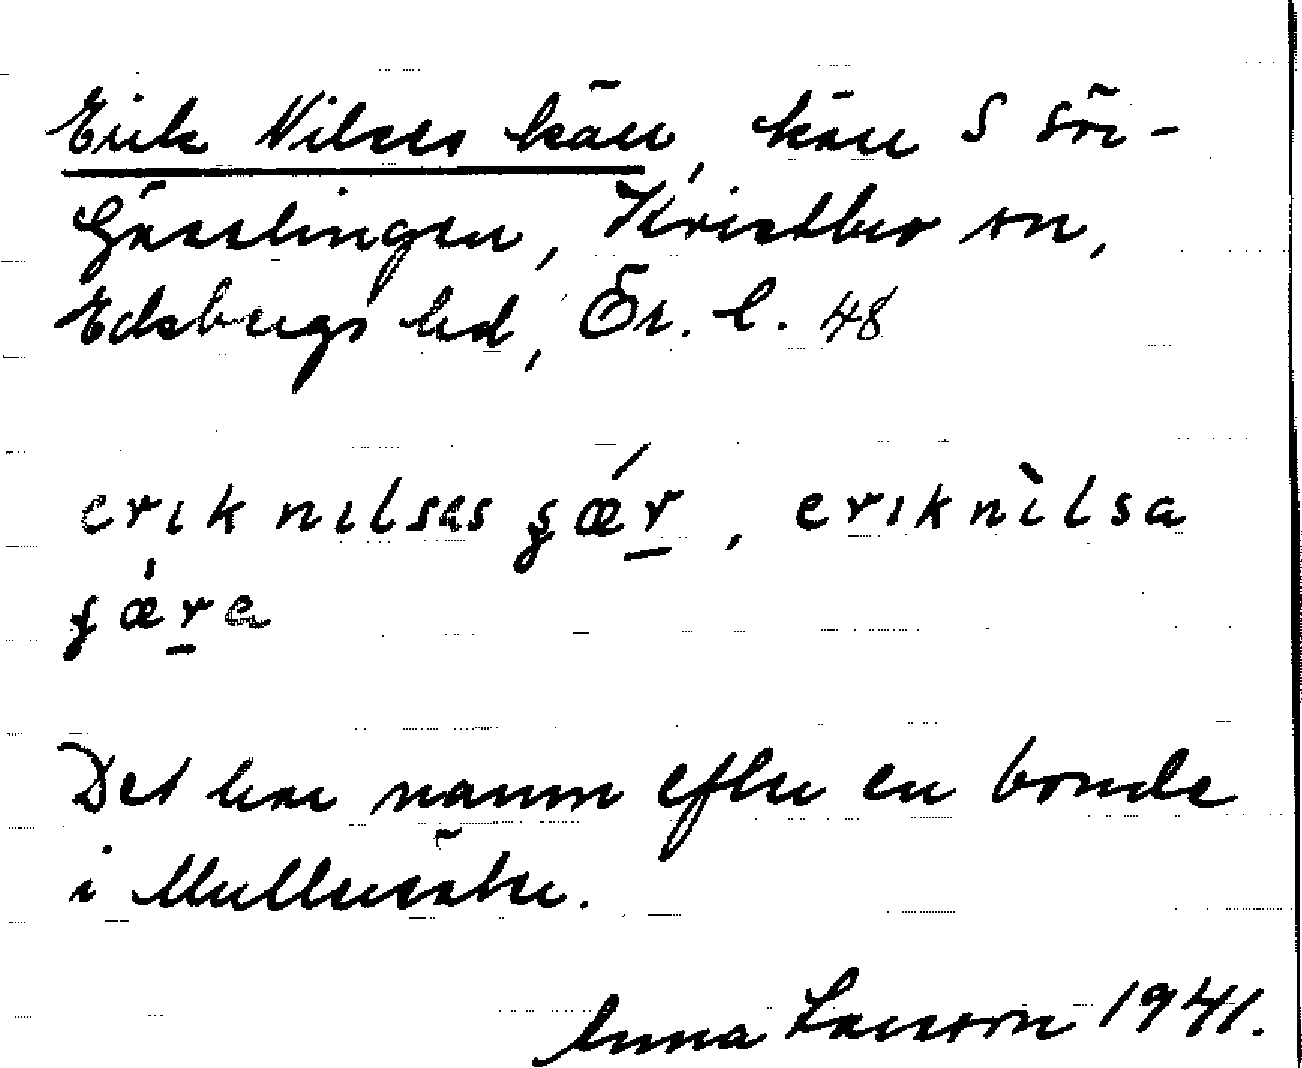 Erik Nilses kärr, kärr S Sör-
Gässlingen, Kvistbro sn,
Edsbergs hd, Ör. l. 48
erik nilses ʂǽr, eriknìlsa
ʂæ̀ra
Det har namn efter en bonde
i Mullersäter.
Anna Larsson 1941.